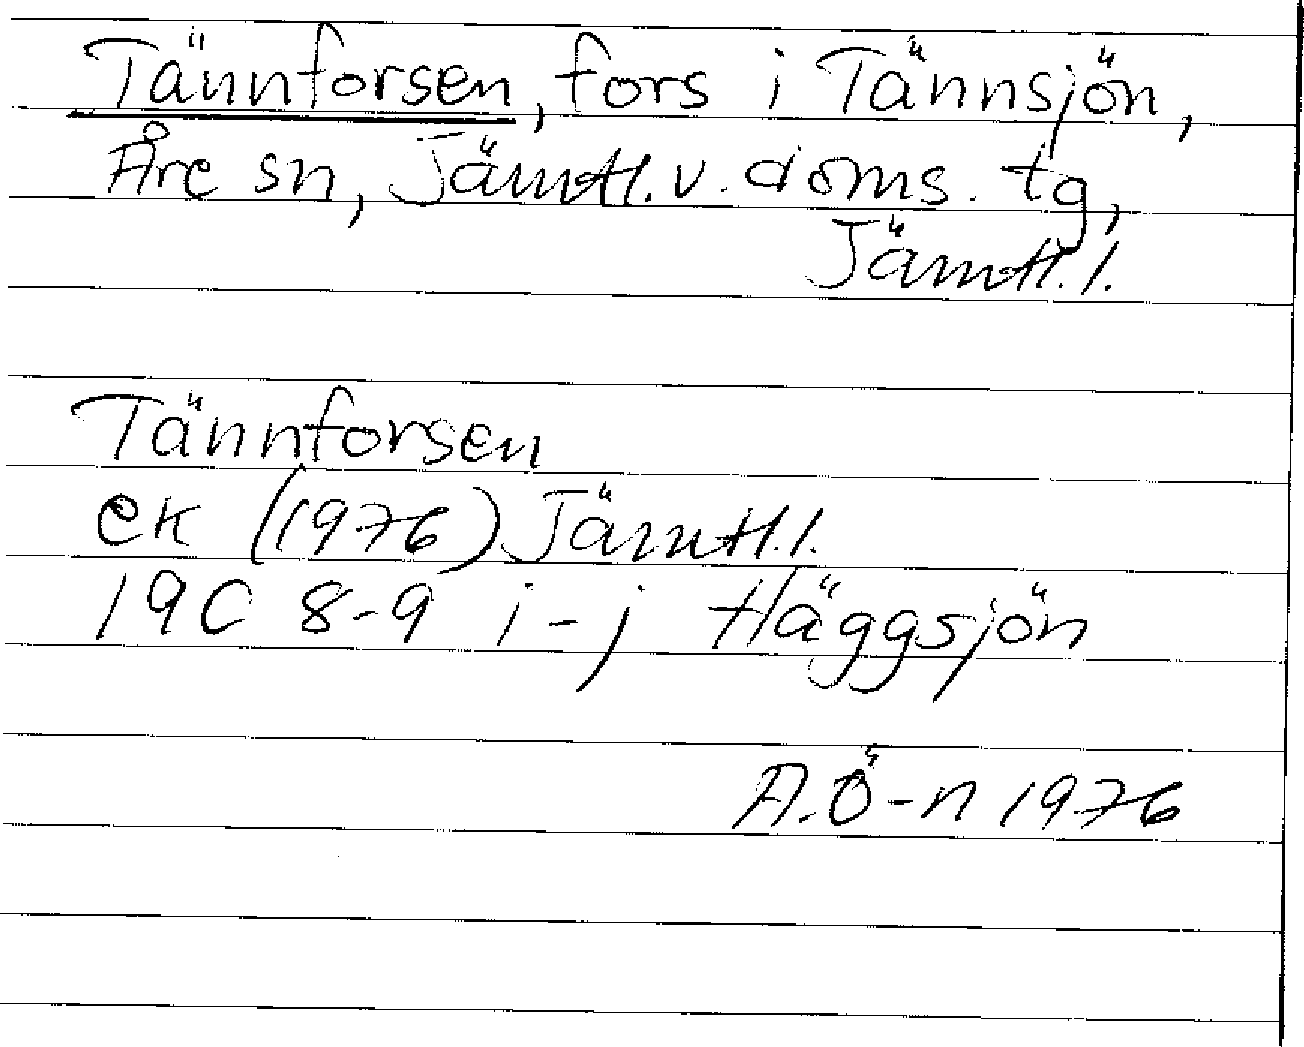 Tännforsen, fors i Tännsjön,
Åre sn, Jämtl. v. doms. tg,
Jämtl. l.
Tännforsen
ek (1976) Jämtl. l.
19C 8-9 i-j Häggsjön
A. Ö-n 1976